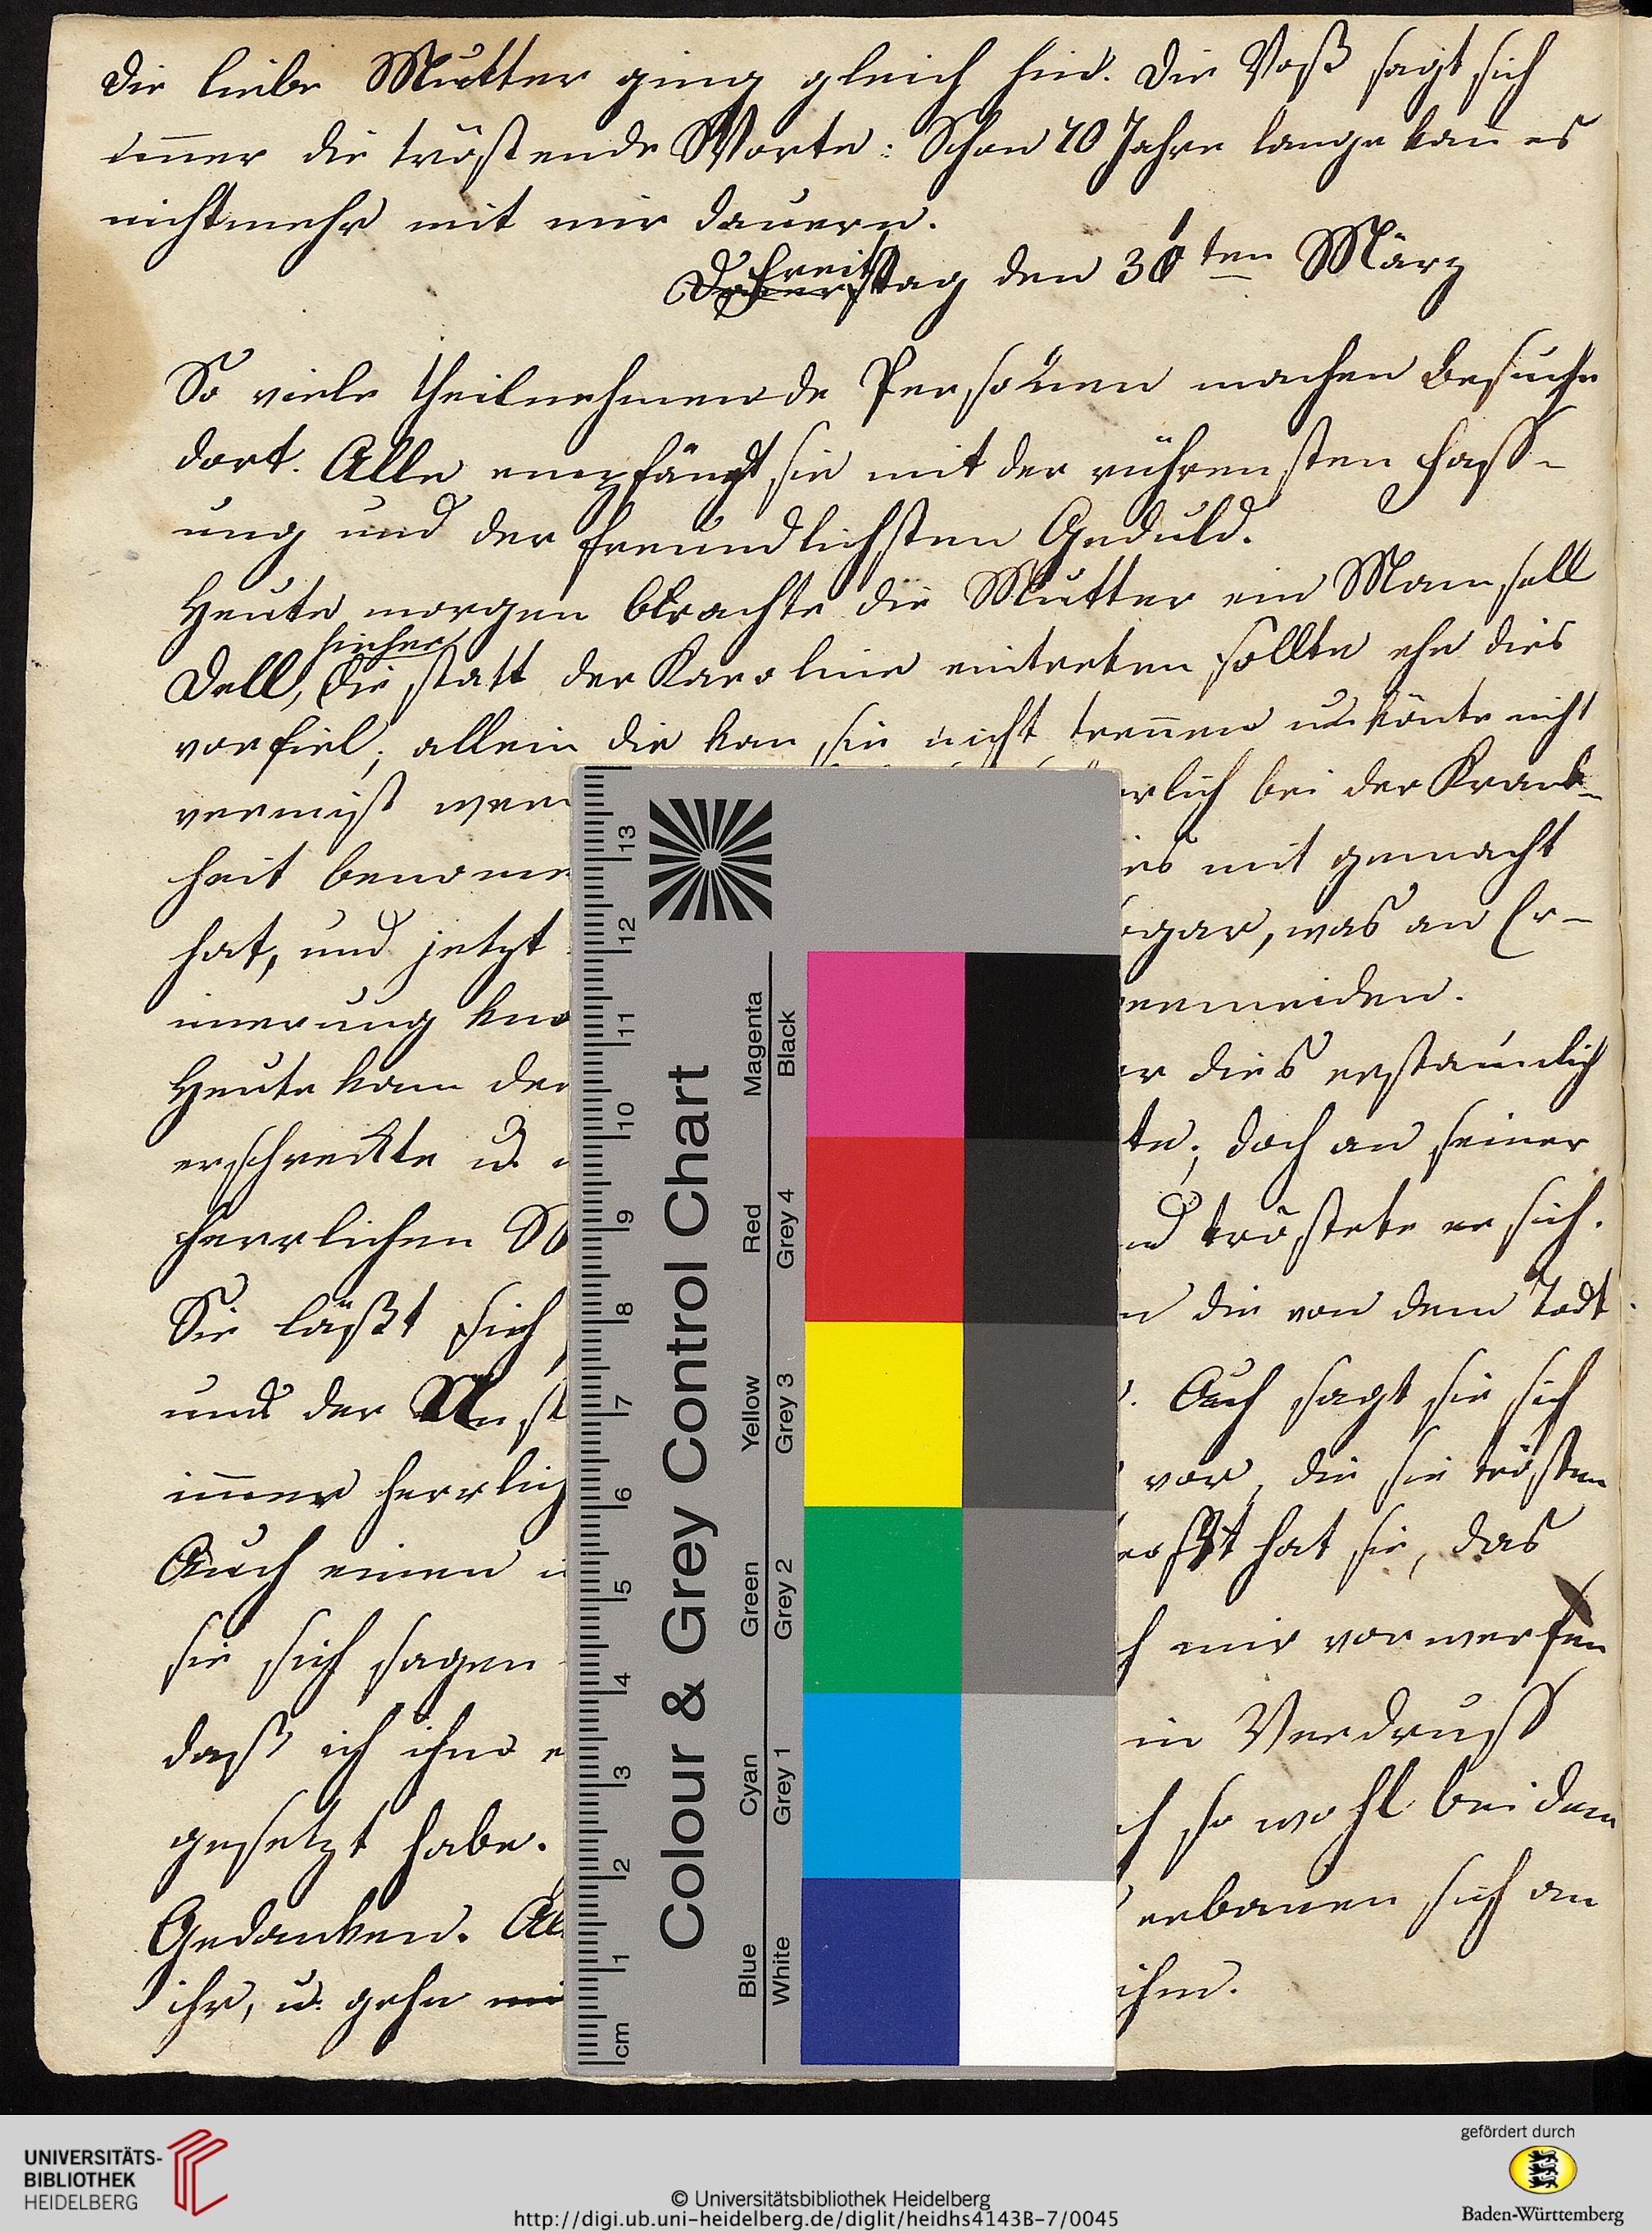 Die liebe Mutter ging gleich hin. Die Voß sagt sich
im̅er die tröstende Worte: Schon 10 Jahre lange kan̅ es
nicht mehr mit mir dauern.
Freitag den 31ten März
So viele theilnehmende Personen machen Besuche
dort. Alle empfängt sie mit der rührensten Fass-
ung und der freundlichsten Geduld.
Heute morgen brachte die Mutter ein Mamsell
hieher
Dell, die statt der Karoline eintreten sollte ehe dies
vorfiel; allein die kan sie nicht tren̅en u könte nicht
vermißt wer
rlich bei der Krank-
heit benom
ies mit gemacht
hat, und jetzt
ogar, was an Er-
innerung
vermeiden.
Heute kam der
er dies erstaunlich
erschreckte u.
te; doch an seiner
herrlichen
nd tröstete er sich.
Sie läßt sich
n die von dem Todt
und der
. Auch sagt sie sich
im̅er herrlich
vor, die sie trösten
Auch einen
hat sie, das
sie sich sagen
h mir vorwerfen
daß ich ihm
in Verdruss
gesetzt habe.
h so wohl bei dem
Gedanken. Al
erbauen sich an
ihr, u. gehn
ihm.
Colour & Grey Control Chart
Blue Cyan Green Yellow Red Magenta
White Grey 1 Grey 2 Grey 3 Grey 4 Black
cm 1 2 3 4 5 6 7 8 9 10 11 12 13
UNIVERSITÄTS-
BIBLIOTHEK
HEIDELBERG
© Universitätsbibliothek Heidelberg
http://digi.ub.uni-heidelberg.de/diglit/heidhs4143B-7/0045
gefördert durch
Baden-Württemberg